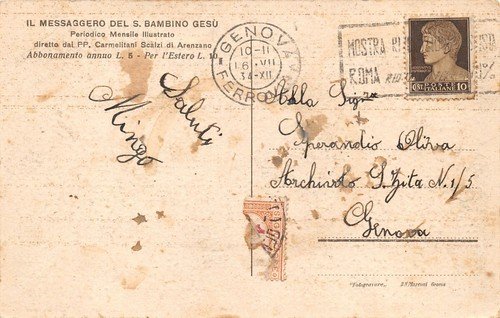 IL MESSAGGERO DEL S. BAMBINO GESÙ
Periodico Mensile Illustrato
diretto dai PP. Carmelitani Scalzi di Arenzano
Abbonamento annuo L. 5 - Per l'Estero L. 10
GENOVA
10-11
16.VII
34-XII
FERROVIA
MOSTRA
ROMA
POSTE ITALIANE
CENT. 10
Saluti
Mingo
Alla Sigra
Sperandio Oliva
Archivolto S. Zita N. 1/5
Genova
"Fotogravure"